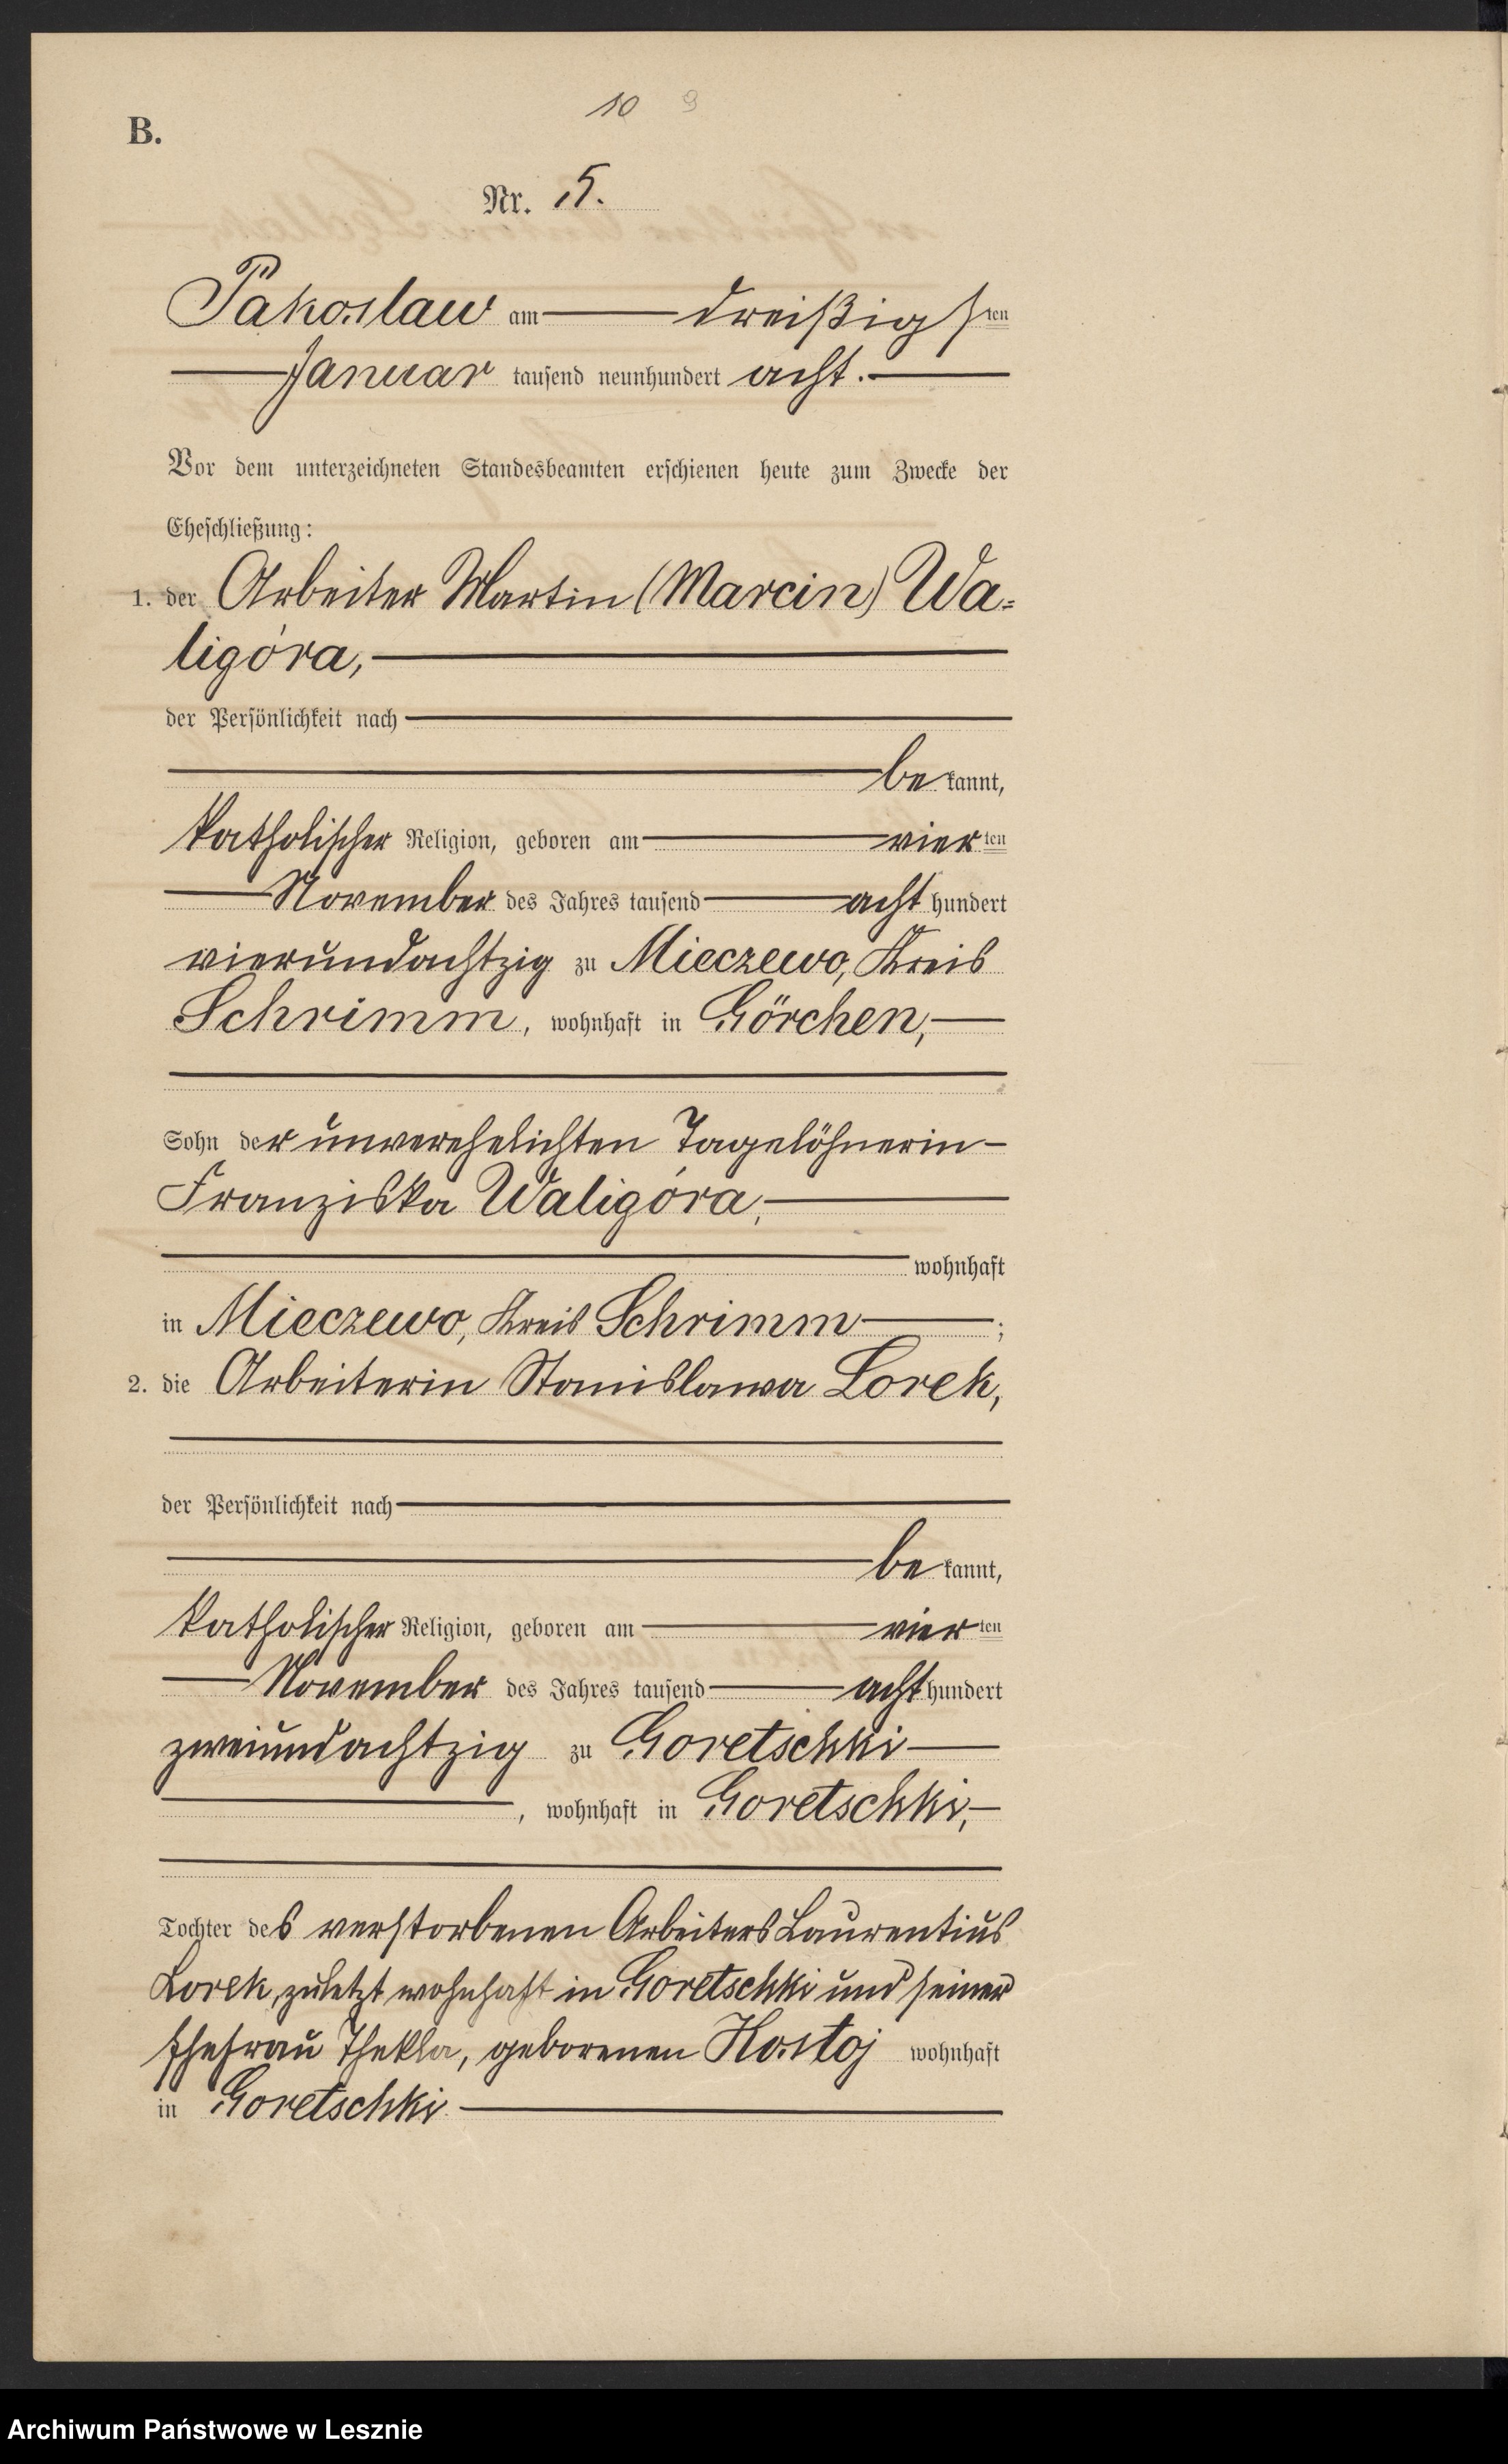 10 9
B.
Nr. 5.
Pakoslaw am dreißigsten
Januar tausend neunhundert acht.
Vor dem unterzeichneten Standesbeamten erschienen heute zum Zwecke der
Eheschließung:
1. der Arbeiter Martin (Marcin) Wa-
ligóra,
der Persönlichkeit nach
bekannt,
katholischer Religion, geboren am vierten
November des Jahres tausend achthundert
vierundachtzig zu Mieczewo, Kreis
Schrimm, wohnhaft in Görchen,
Sohn der unverehelichten Tagelöhnerin
Franziska Waligóra,
wohnhaft
in Mieczewo, Kreis Schrimm ;
2. die Arbeiterin Stanislawa Lorek,
der Persönlichkeit nach
bekannt,
katholischer Religion, geboren am vierten
November des Jahres tausend achthundert
zweiundachtzig zu Goretschki
, wohnhaft in Goretschki,
Tochter des verstorbenen Arbeiters Laurentius
Lorek, zuletzt wohnhaft in Goretschki und seiner
Ehefrau Thekla, geborenen Kostoj wohnhaft
in Goretschki
Archiwum Państwowe w Lesznie